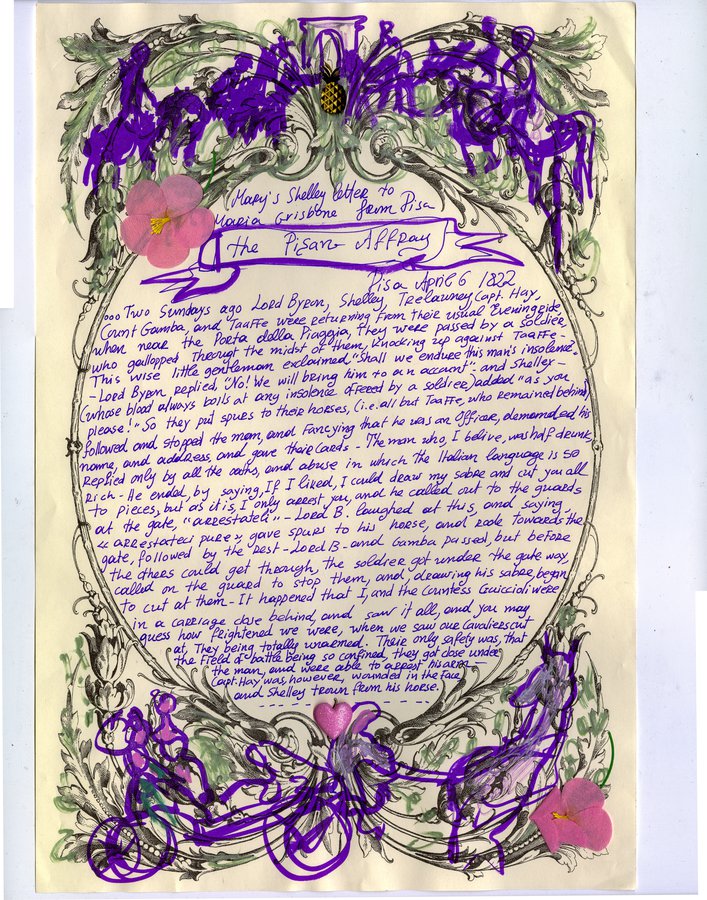 (Mary's Shelley letter to
Maria Grisbone from Pisa
the Pisan Affray
Pisa April 6 1822
... Two Sundays ago Lord Byron, Shelley, Trelawney Capt. Hay,
Count Gamba, and Taaffe were returning from their usual Evening ride,
when near the Porta della Piaggia, they were passed by a soldier,
who gallopped through the midst of them, knocking up against Taaffe -
This wise little gentleman exclaimed, "Shall we endure this man's insolence."
- Lord Byron replied, "No! We will bring him to an account" and Shelley -
(whose blood always boils at any insolence offered by a soldier) added "as you
please!" So they put spurs to their horses, (i.e. all but Taaffe, who remained behind)
followed and stopped the man, and fancying that he was an Officer, demanded his
name, and address, and gave their Cards - The man who, I belive, was half drunk,
replied only by all the oaths, and abuse in which the Italian language is so
rich - He ended, by saying, If I liked, I could draw my sabre and cut you all
to pieces, but as it is, I only arrest you, and he called out to the guards
at the gate, "arrestateli" - Lord B. laughed at this, and saying,
« arrestateci pure » gave spurs to his horse, and rode towards the
gate, followed by the rest - Lord B - and Gamba passed, but before
the others could get through, the soldier got under the gate way,
called on the guard to stop them, and, drawing his sabre, began
to cut at them - It happened that I, and the Countess Guiccioli were
in a carriage close behind, and saw it all, and you may
guess how frightened we were, when we saw our Cavaliers cut
at, They being totally unarmed. Their only safety was, that
the Field of battle being so confined, they got close under
the man, and were able to arrest his arm -
Capt. Hay was, however, wounded in the Face,
and Shelley trown from his horse.